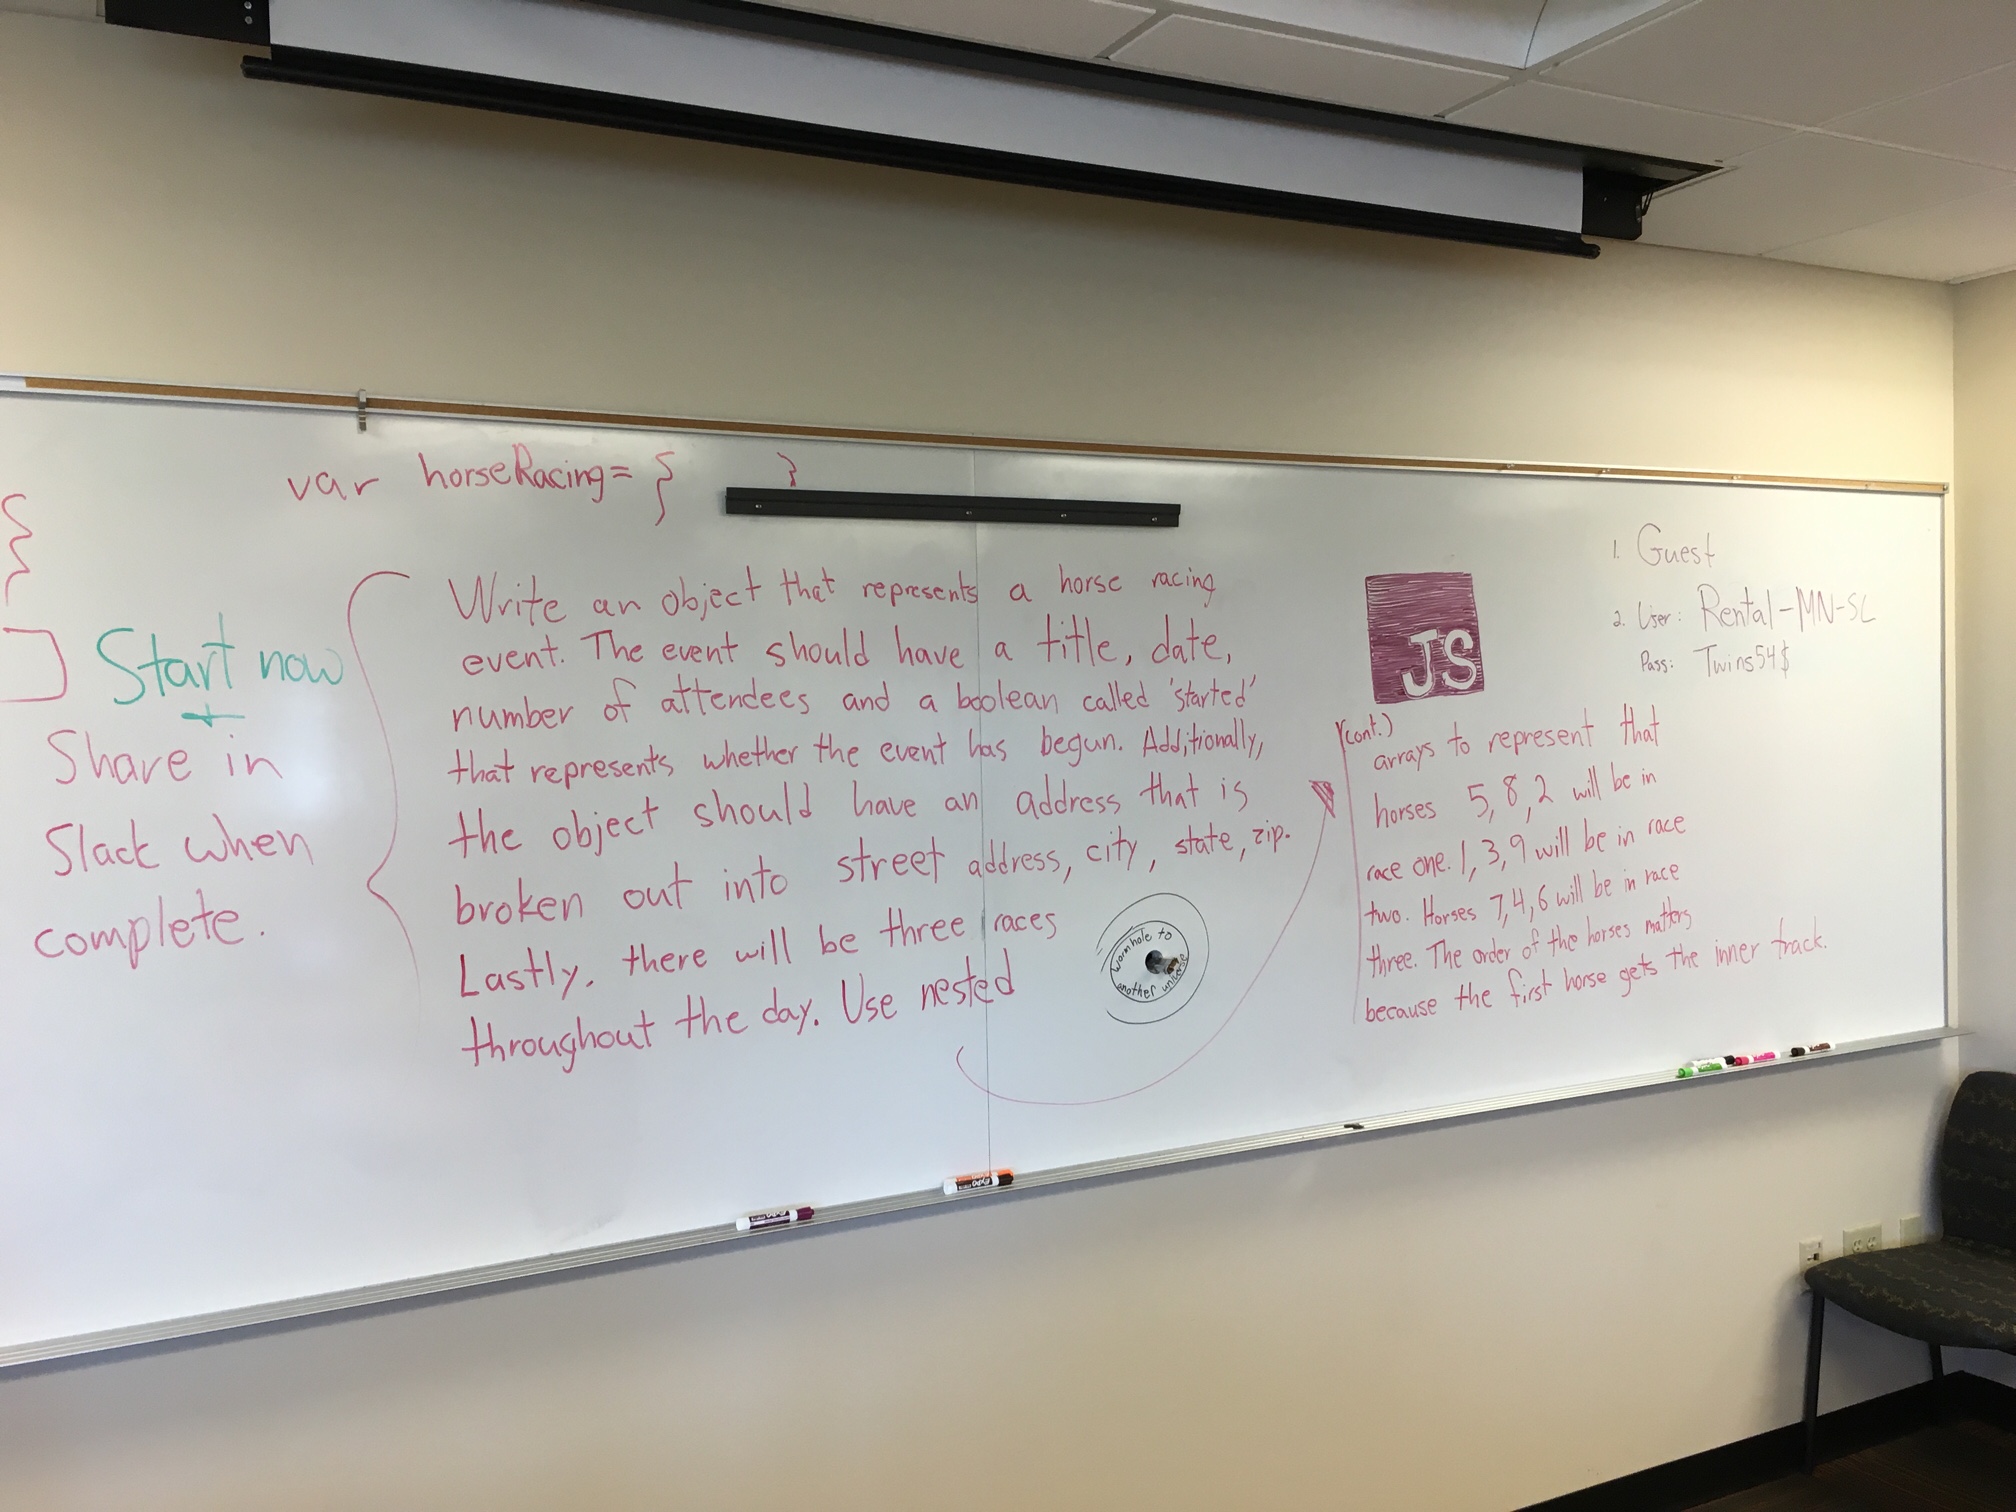 var horseRacing = { }
{
Start now
+
Share in
Slack when
complete.
Write an object that represents a horse racing
event. The event should have a title, date,
number of attendees and a boolean called 'started'
that represents whether the event has begun. Additionally,
the object should have an address that is
broken out into street address, city, state, zip.
Lastly, there will be three races
throughout the day. Use nested
wormhole to
another universe
JS
(cont.)
arrays to represent that
horses 5, 8, 2 will be in
race one. 1, 3, 9 will be in race
two. Horses 7, 4, 6 will be in race
three. The order of the horses matters
because the first horse gets the inner track.
1. Guest
2. User: Rental-MN-SL
Pass: Twins54$